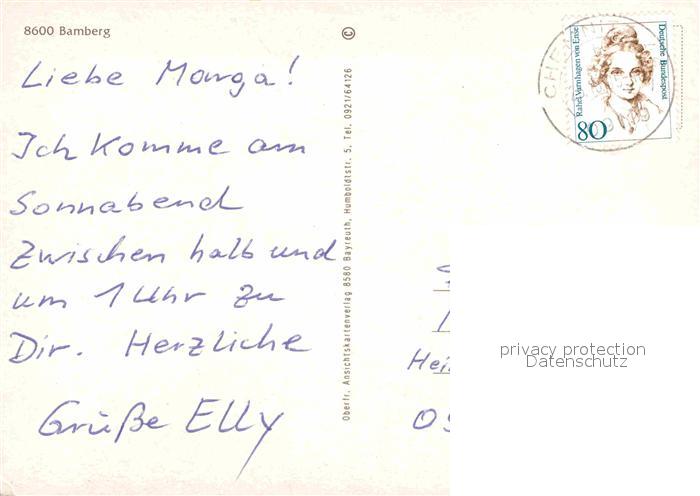 8600 Bamberg
Liebe Marga!
Ich komme am
Sonnabend
zwischen halb und
um 1 Uhr zu
Dir. Herzliche
Grüße Elly
Oberfr. Ansichtskartenverlag 8580 Bayreuth, Humboldtstr. 5, Tel. 0921/64126
©
Rahel Varnhagen von Ense
Deutsche Bundespost
80
privacy protection
Datenschutz